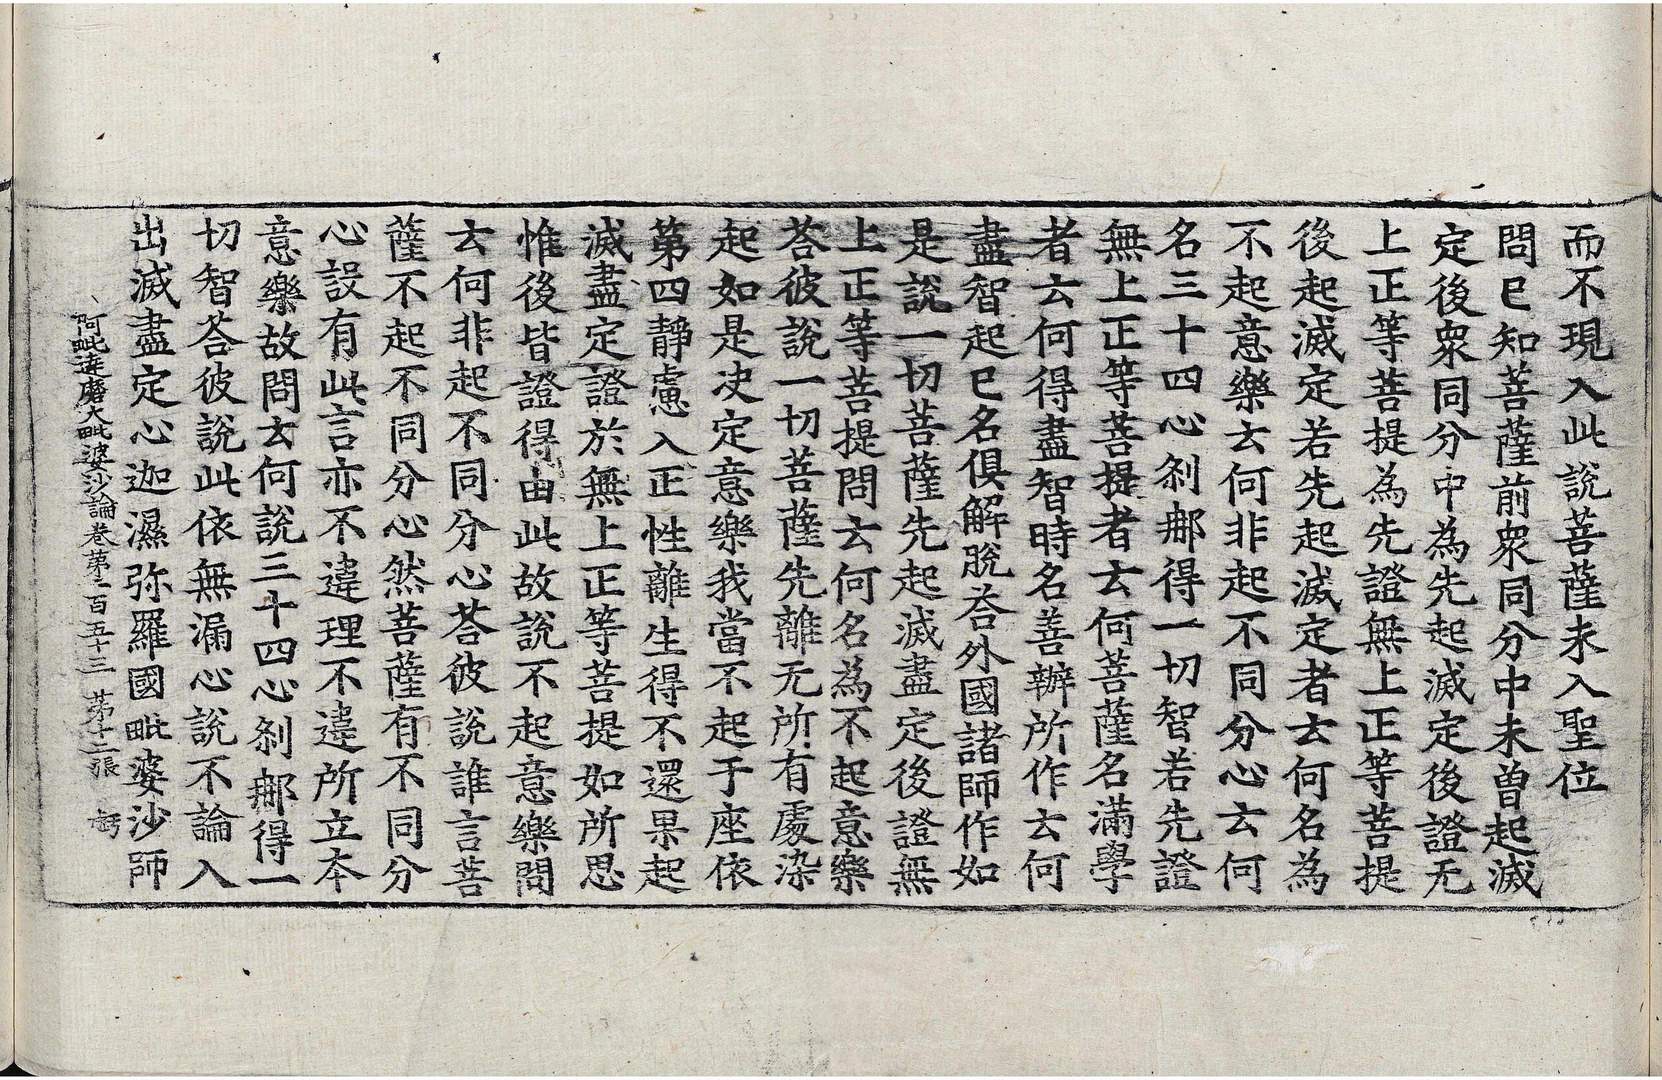 而不現入此說菩薩未入聖位
問已知菩薩前衆同分中未曾起滅
定後衆同分中為先起滅定後證无
上正等菩提為先證無上正等菩提
後起滅定若先起滅定者云何名為
不起意樂云何非起不同分心云何
名三十四心剎𨙻得一切智若先證
無上正等菩提者云何菩薩名滿學
者云何得盡智時名善辦所作云何
盡智起已名俱解脫荅外國諸師作如
是說一切菩薩先起滅盡定後證無
上正等菩提問云何名為不起意樂
荅彼說一切菩薩先離无所有處染
起如是决定意樂我當不起于座依
第四靜慮入正性離生得不還果起
滅盡定證於無上正等菩提如所思
惟後皆證得由此故說不起意樂問
云何非起不同分心荅彼說誰言菩
薩不起不同分心然菩薩有不同分
心設有此言亦不違理不違所立本
意樂故問云何說三十四心剎𨙻得一
切智荅彼說此依無漏心說不論入
出滅盡定心迦濕弥羅國毗婆沙師
阿毗達磨大毗婆沙論卷第一百五十三 第十二張